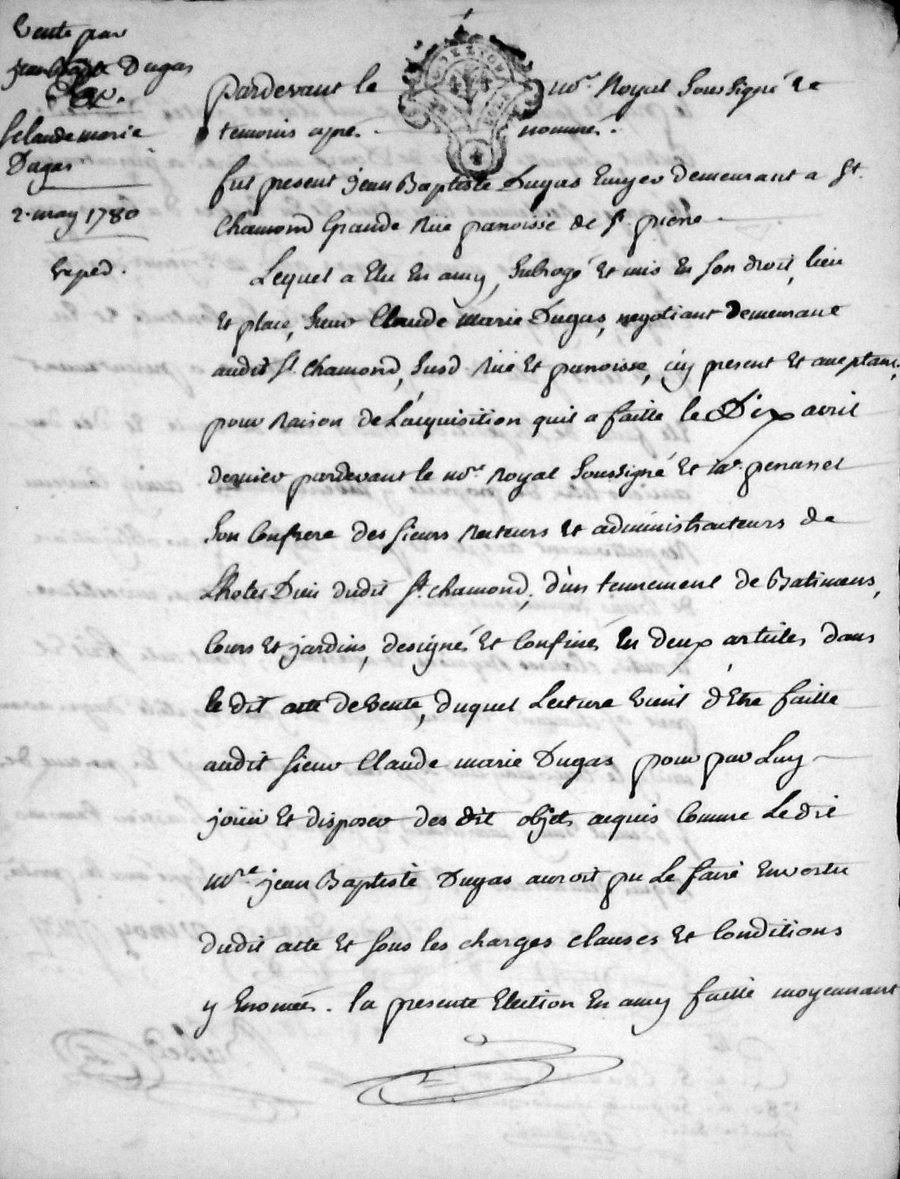 Vente par
jean Dugas
Sr Claude marie
Dugas
2. may 1780
Exped.
pardevant le nore. Royal Soussigné et
temoins apré. nommé.
fut present jean Baptiste Dugas Ecuyer demeurant a St.
Chamond Grande Rue paroisse de St. pierre.
Lequel a Elu En amy, Subrogé et mis En Son droit, lieu
et place, Sieur Claude Marie Dugas, negotiant demeurant
audit St. Chamond, Susd Rue Et paroisse, cy present Et acceptant,
pour Raison de L'acquisition quil a faitte le Dix avril
dernier pardevant le nore. Royal Soussigné Et
Son Confrere des Sieurs Recteurs et administrateurs de
Lhotel Dieu dudit St. chamond, d'un tennement de Batimens,
Cours Et jardins, designés Et Confinés En deux articles dans
le dit acte de vente, duquel Lecture vient d'Etre faitte
audit Sieur Claude marie Dugas pour par Luy
joüir Et disposer des dit objets acquis Comme Ledit
jean Baptiste Dugas auroit pu Le faire En vertu
dudit acte Et Sous les charges clauses Et Conditions
y Enoncées. la presente Election En amy faitte moyennant